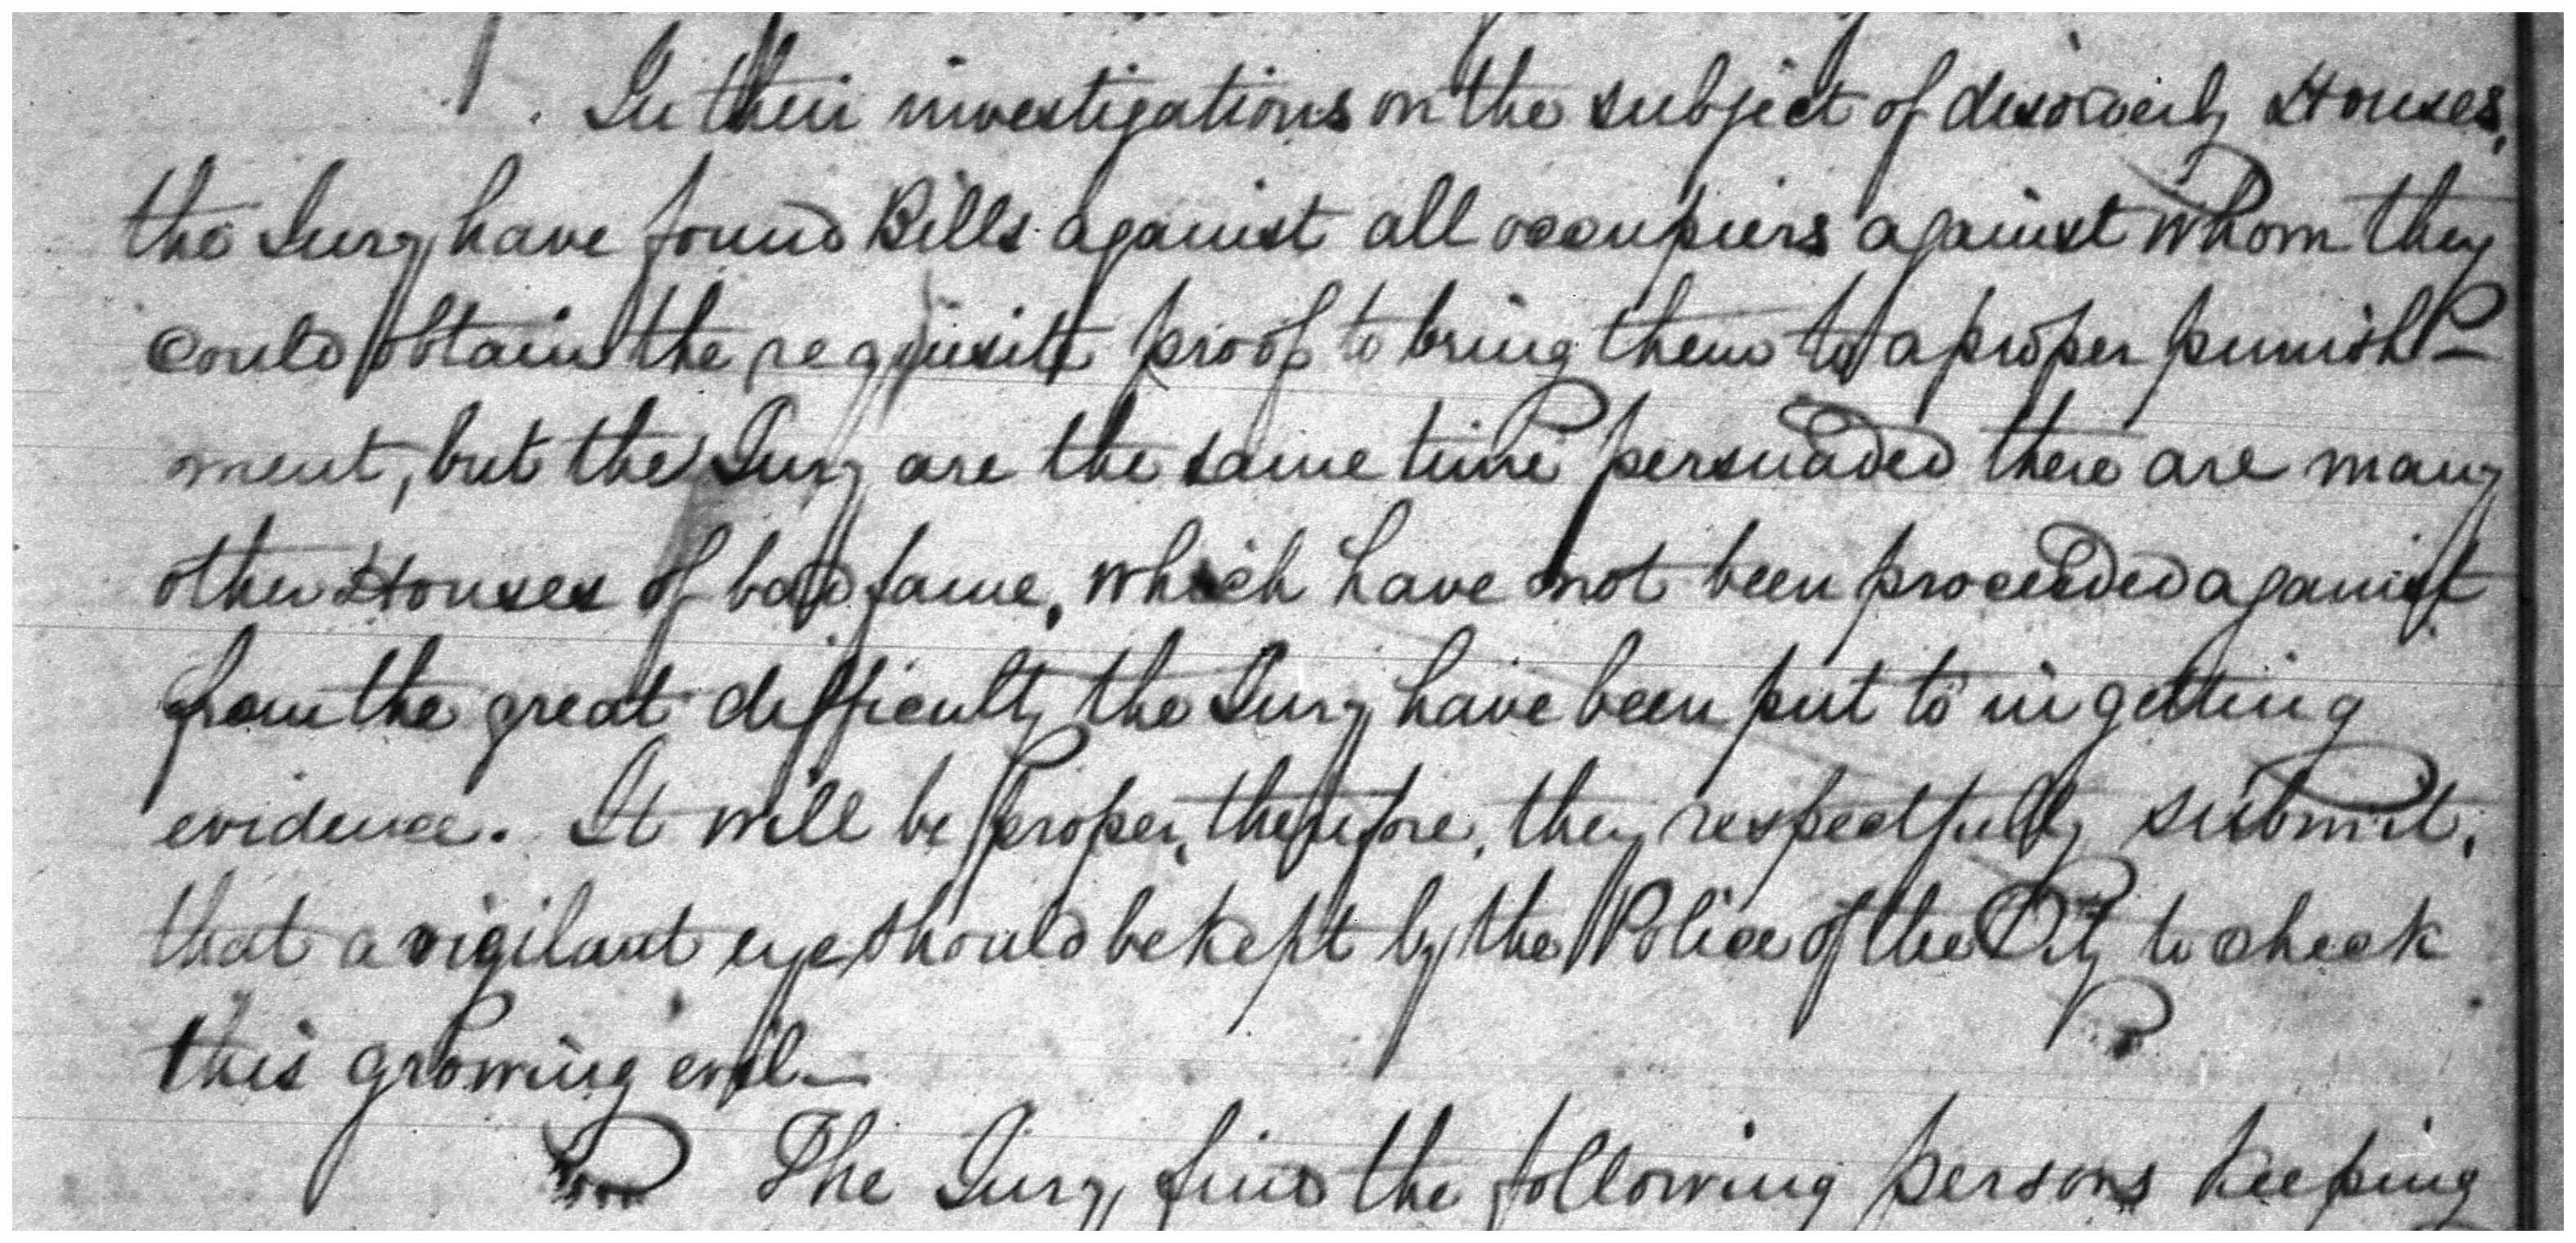 In their investigations on the subject of disorderly Houses,
the Jury have found Bills against all occupiers against whom they
could obtain the requisite proof to bring them to a proper punish-
ment, but the Jury are the same time persuaded there are many
other Houses of bad fame, which have not been proceeded against
from the great difficulty the Jury have been put to in getting
evidence. It will be proper, therefore, they respectfully submit,
that a vigilant eye should be kept by the Police of the City to check
this growing evil—
The Jury find the following persons keeping